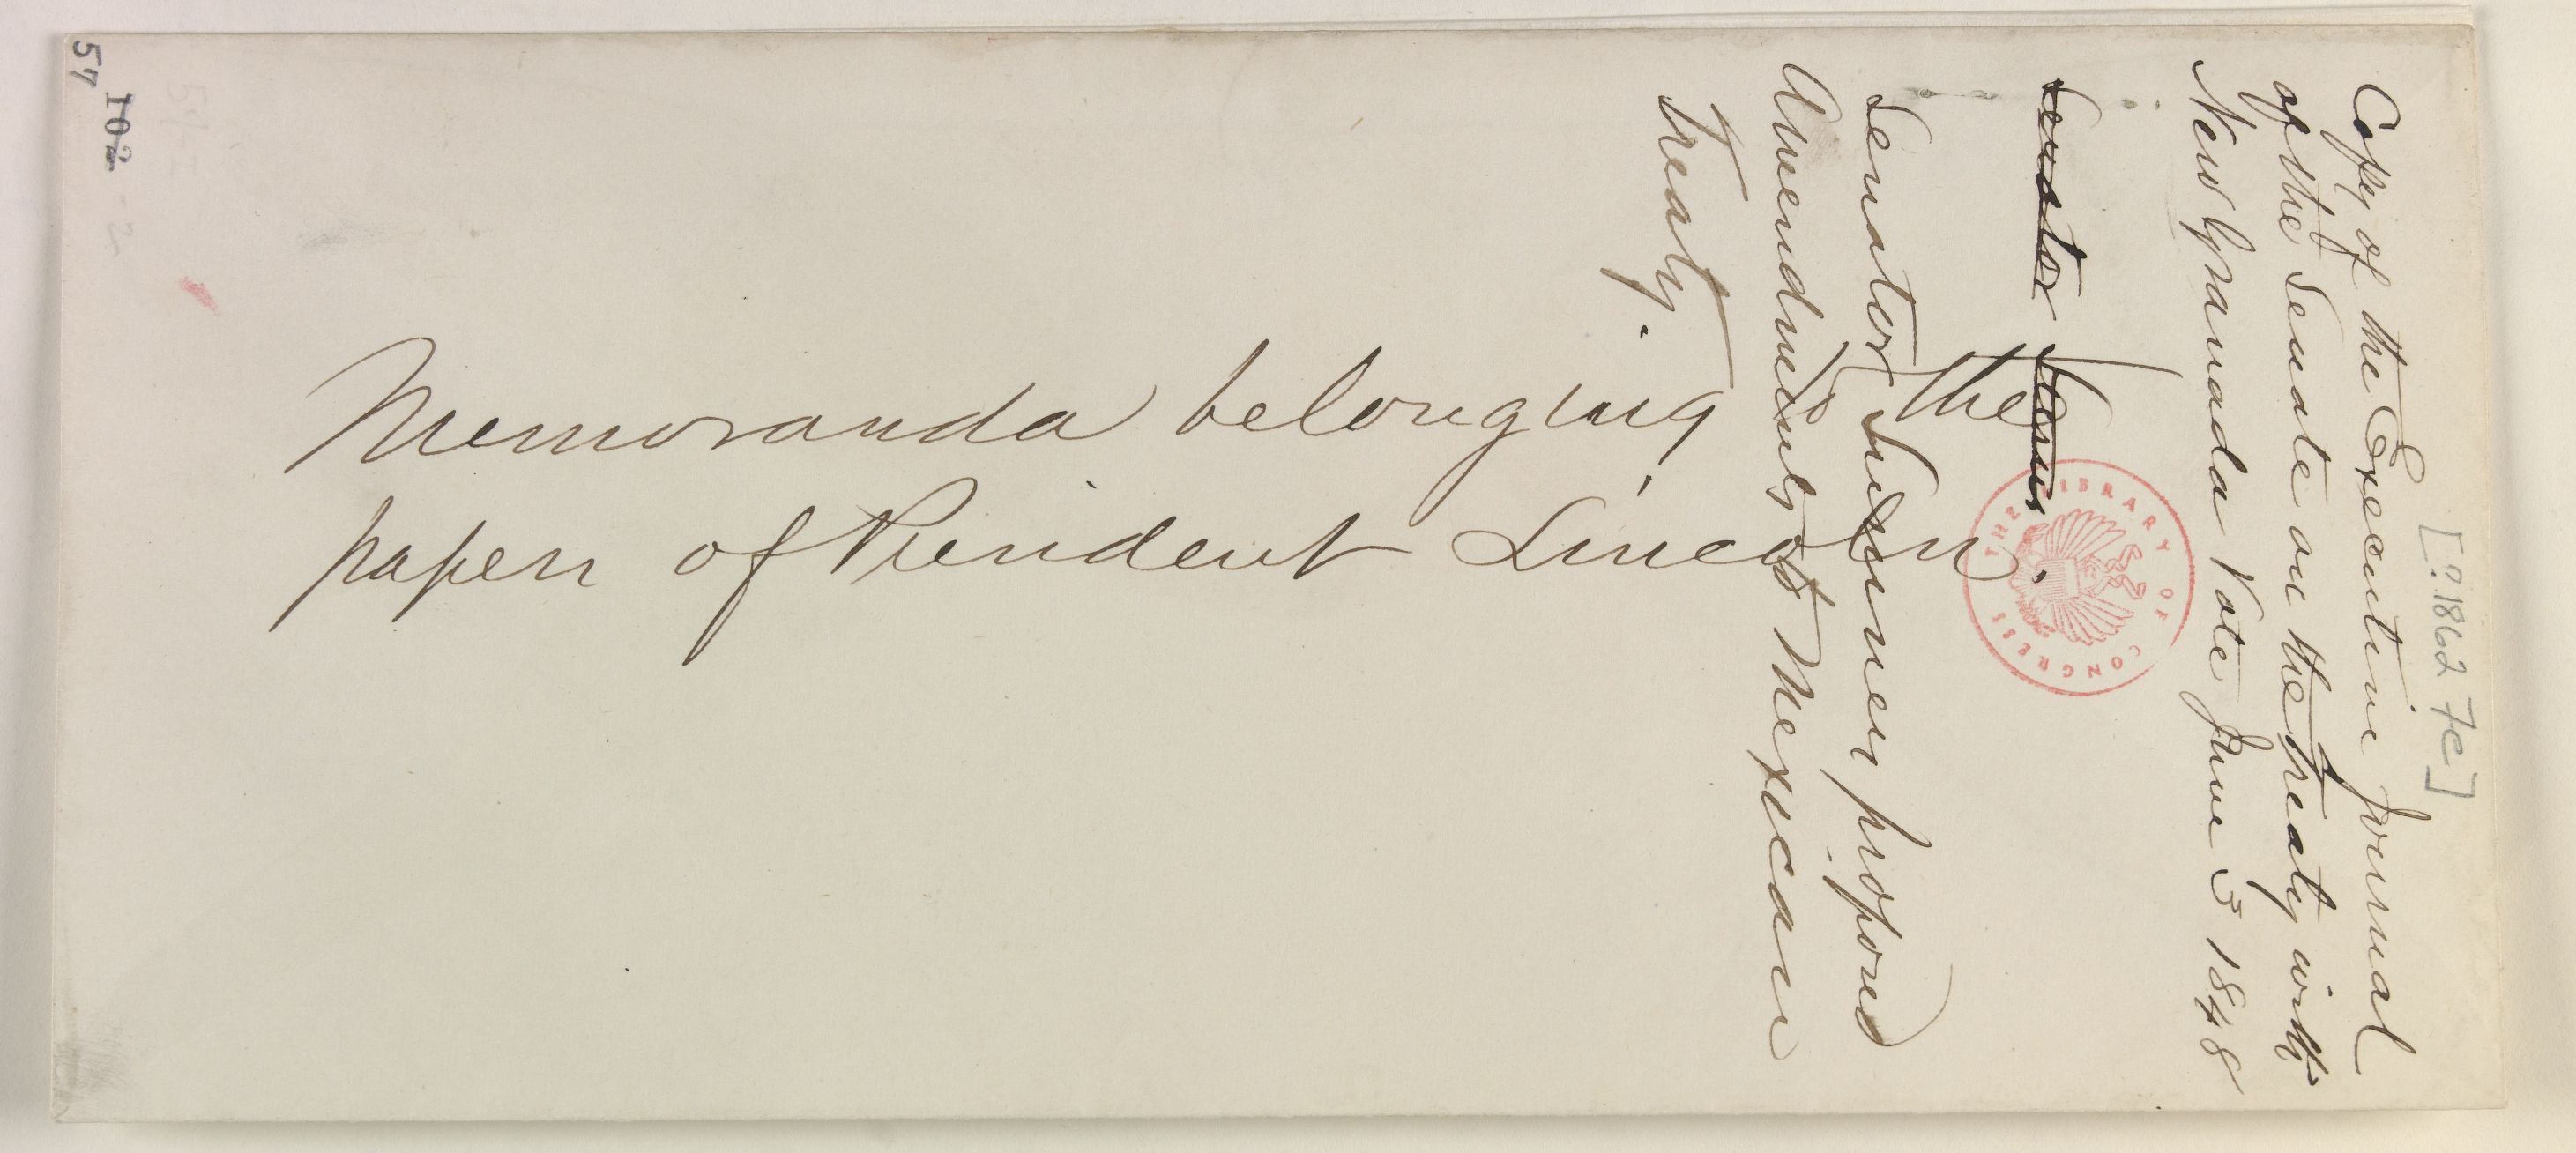 [?.1862 Fe]
Copy of the Executive Journal
of the Senate on the treaty with
New Granada Vote June 3 1848
Senator
Senator Sumner proposed
Amendments to Mexican
treaty.
Memoranda belonging to the
papers of President Lincoln.
THE LIBRARY OF CONGRESS
57
102